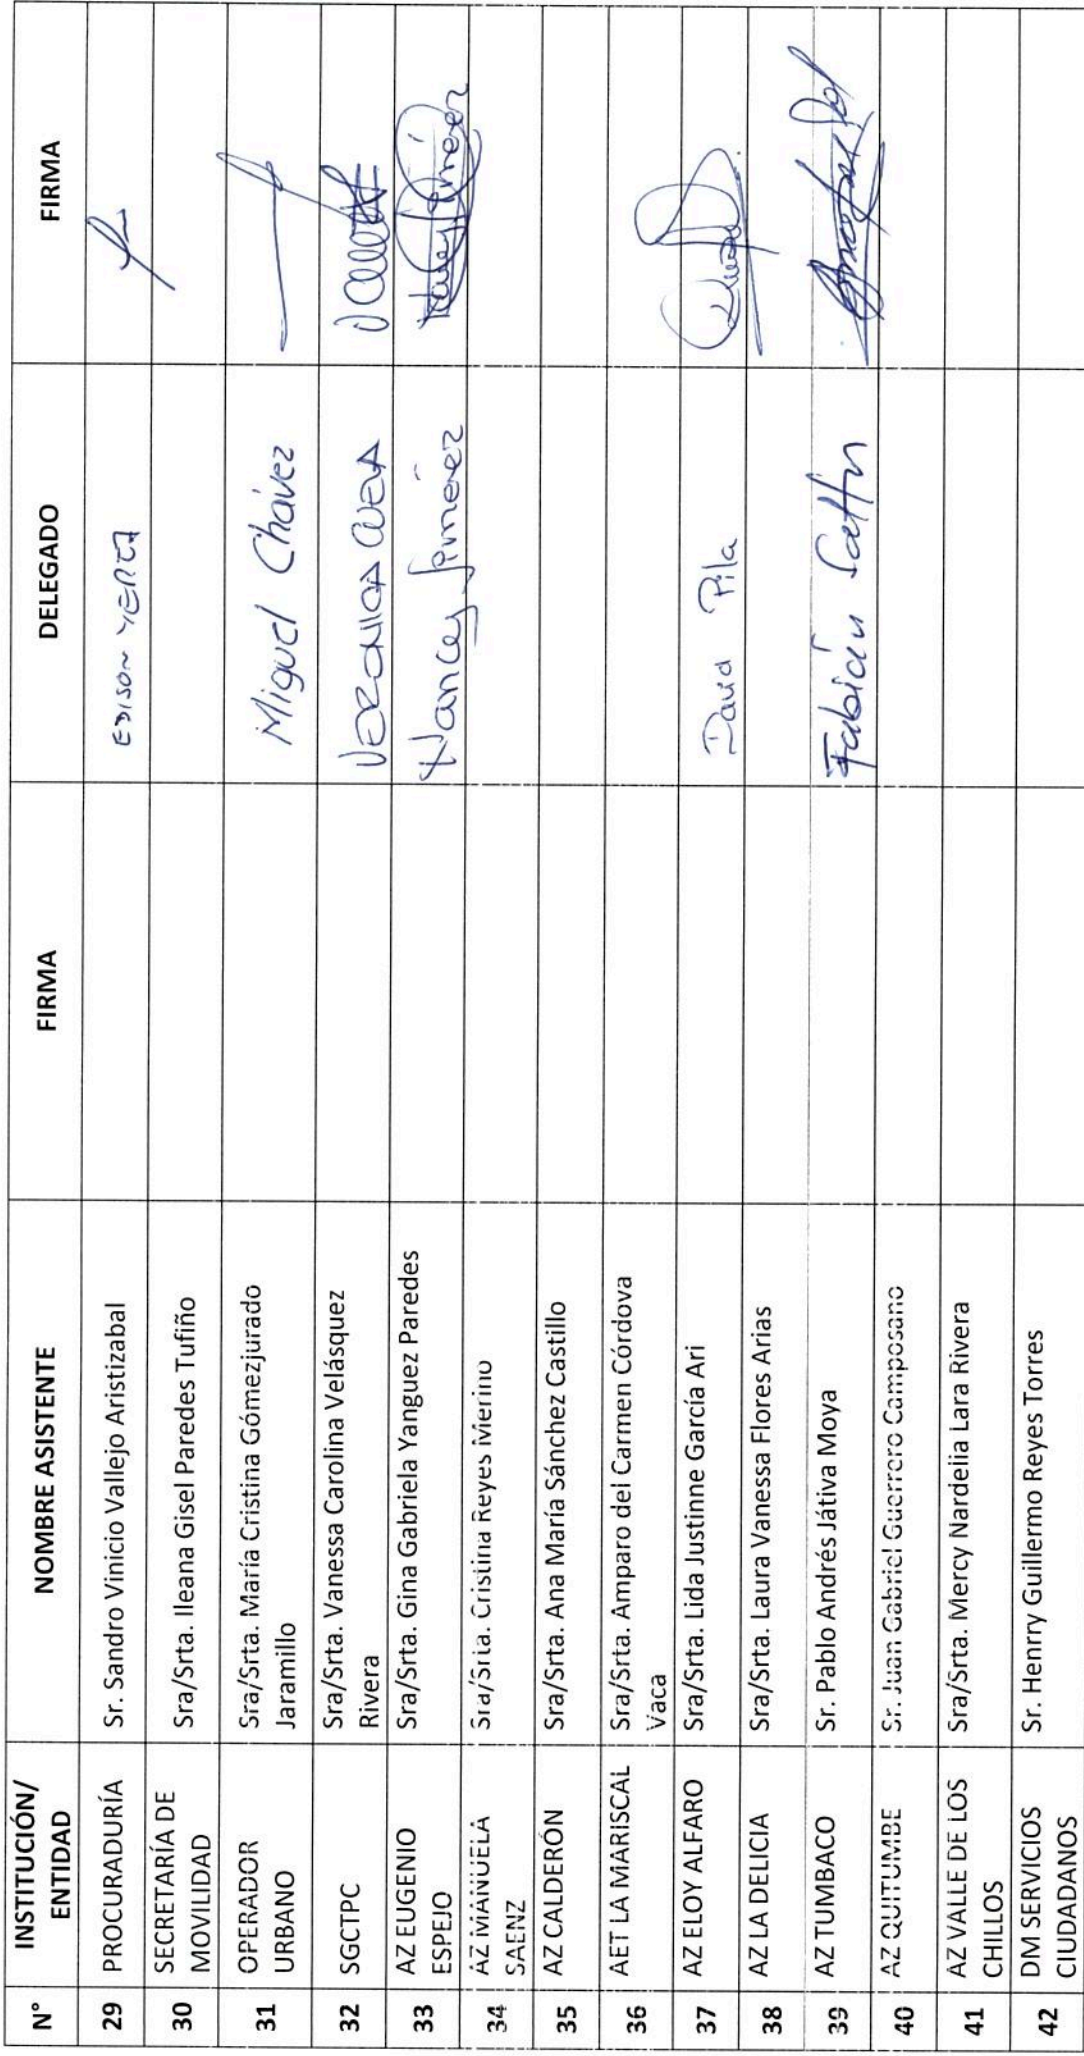 N° INSTITUCIÓN/ ENTIDAD NOMBRE ASISTENTE FIRMA DELEGADO FIRMA
29 PROCURADURÍA Sr. Sandro Vinicio Vallejo Aristizabal EDISON YEPEZ
30 SECRETARÍA DE MOVILIDAD Sra/Srta. Ileana Gisel Paredes Tufiño
31 OPERADOR URBANO Sra/Srta. María Cristina Gómezjurado Jaramillo Miguel Chávez
32 SGCTPC Sra/Srta. Vanessa Carolina Velásquez Rivera VERONICA CUEVA
33 AZ EUGENIO ESPEJO Sra/Srta. Gina Gabriela Yanguez Paredes Nancy Jiménez
34 AZ MANUELA SAENZ Sra/Srta. Cristina Reyes Merino
35 AZ CALDERÓN Sra/Srta. Ana María Sánchez Castillo
36 AET LA MARISCAL Sra/Srta. Amparo del Carmen Córdova Vaca
37 AZ ELOY ALFARO Sra/Srta. Lida Justinne García Ari David Pila
38 AZ LA DELICIA Sra/Srta. Laura Vanessa Flores Arias
39 AZ TUMBACO Sr. Pablo Andrés Játiva Moya Fabián
40 AZ QUITUMBE Sr. Juan Gabriel Guerrero Camposano
41 AZ VALLE DE LOS CHILLOS Sra/Srta. Mercy Nardelia Lara Rivera
42 DM SERVICIOS CIUDADANOS Sr. Henrry Guillermo Reyes Torres